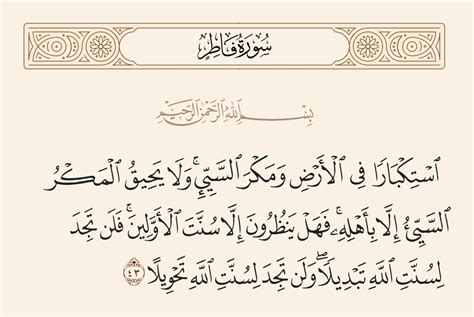 سُورَةُ فَاطِرٍ
بِسْمِ اللَّهِ الرَّحْمَٰنِ الرَّحِيمِ
ٱسْتِكْبَارًا فِى ٱلْأَرْضِ وَمَكْرَ ٱلسَّيِّئِ ۚ وَلَا يَحِيقُ ٱلْمَكْرُ
ٱلسَّيِّئُ إِلَّا بِأَهْلِهِۦ ۚ فَهَلْ يَنظُرُونَ إِلَّا سُنَّتَ ٱلْأَوَّلِينَ ۚ فَلَن تَجِدَ
لِسُنَّتِ ٱللَّهِ تَبْدِيلًا ۖ وَلَن تَجِدَ لِسُنَّتِ ٱللَّهِ تَحْوِيلًا ٤٣